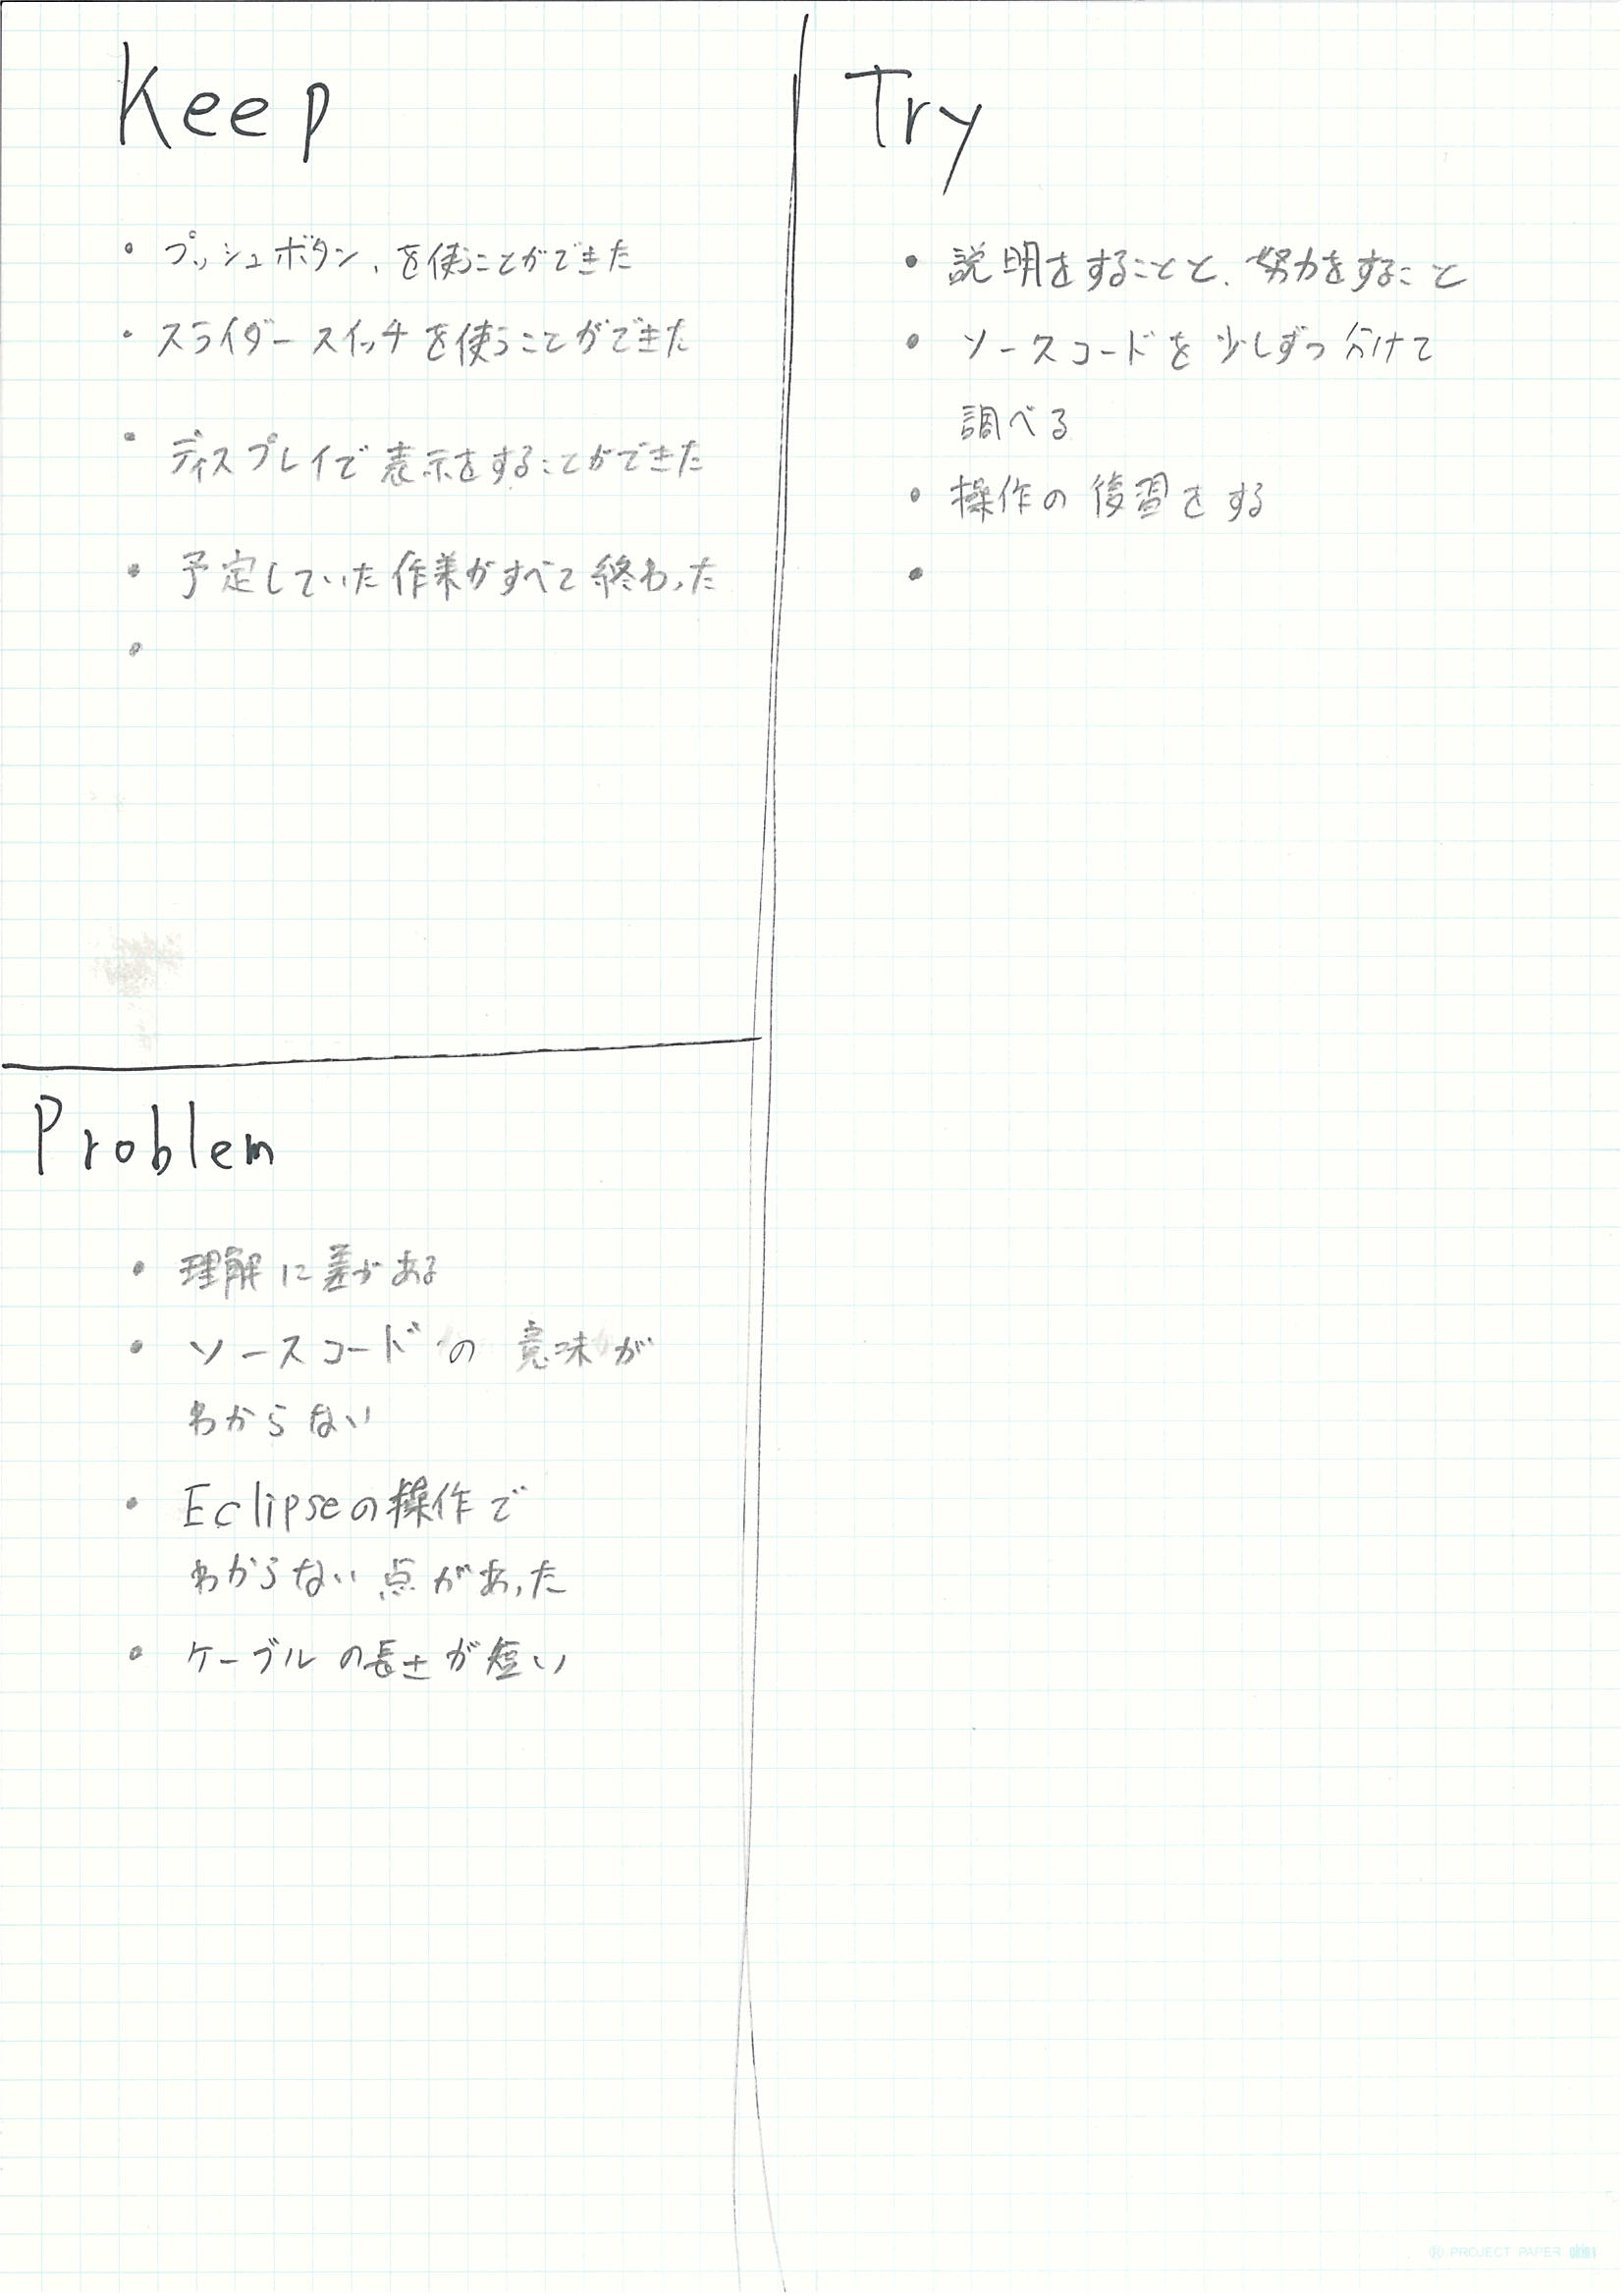 Keep
・プッシュボタン、を使うことができた
・スライダースイッチを使うことができた
・ディスプレイで表示をすることができた
・予定していた作業がすべて終わった
・
Problem
・理解に差がある
・ソースコードの意味が
わからない
・Eclipseの操作で
わからない点があった
・ケーブルの長さが短い
Try
・説明をすることと、努力をすること
・ソースコードを少しずつ分けて
調べる
・操作の復習をする
・
PROJECT PAPER